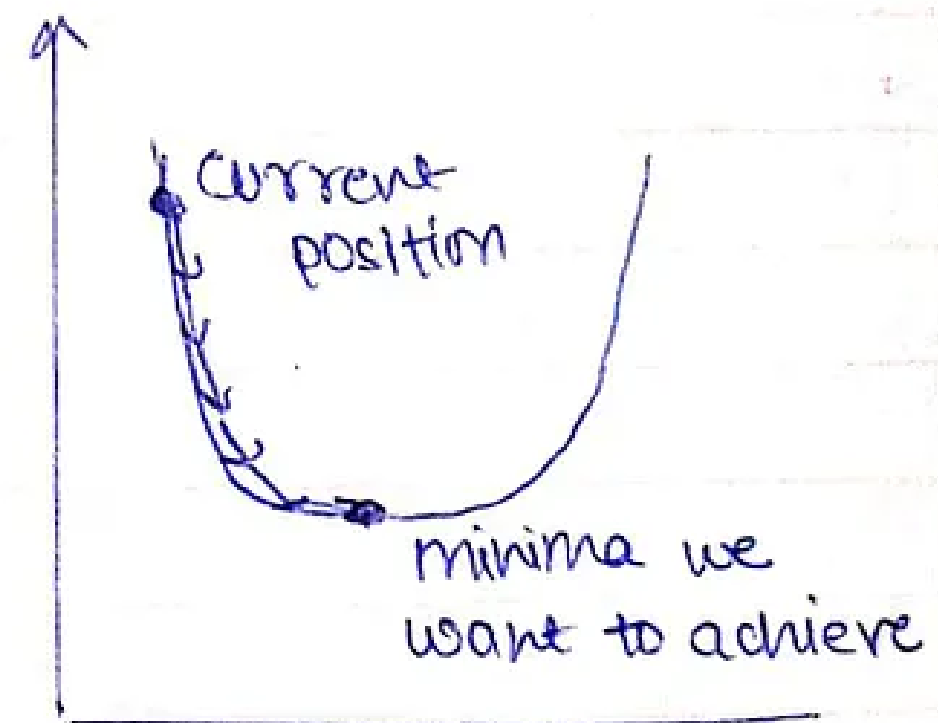 current
position
minima we
want to achieve